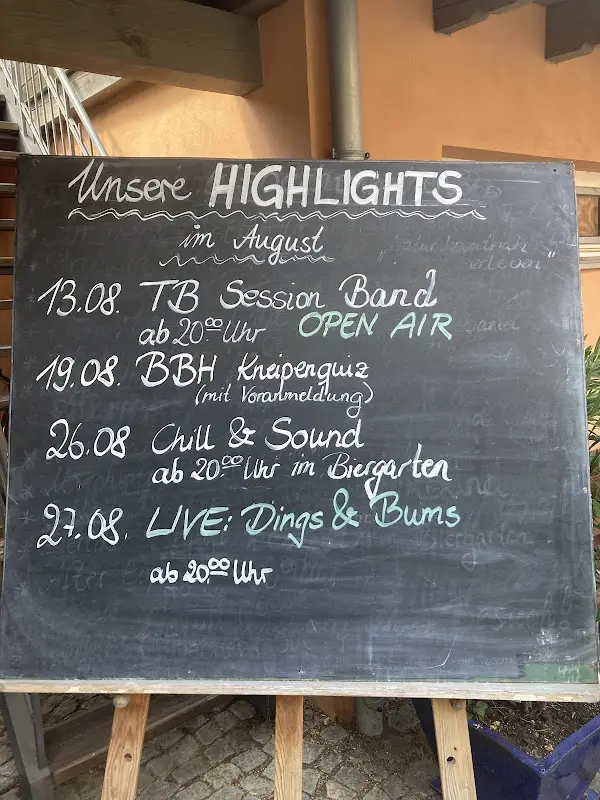 Unsere HIGHLIGHTS
im August
13.08. TB Session Band
ab 20⁰⁰ Uhr OPEN AIR
19.08. BBH Kneipenquiz
(mit Voranmeldung)
26.08 Chill & Sound
ab 20⁰⁰ Uhr im Biergarten
27.08. LIVE: Dings & Bums
ab 20⁰⁰ Uhr
erleben"
Biergarten